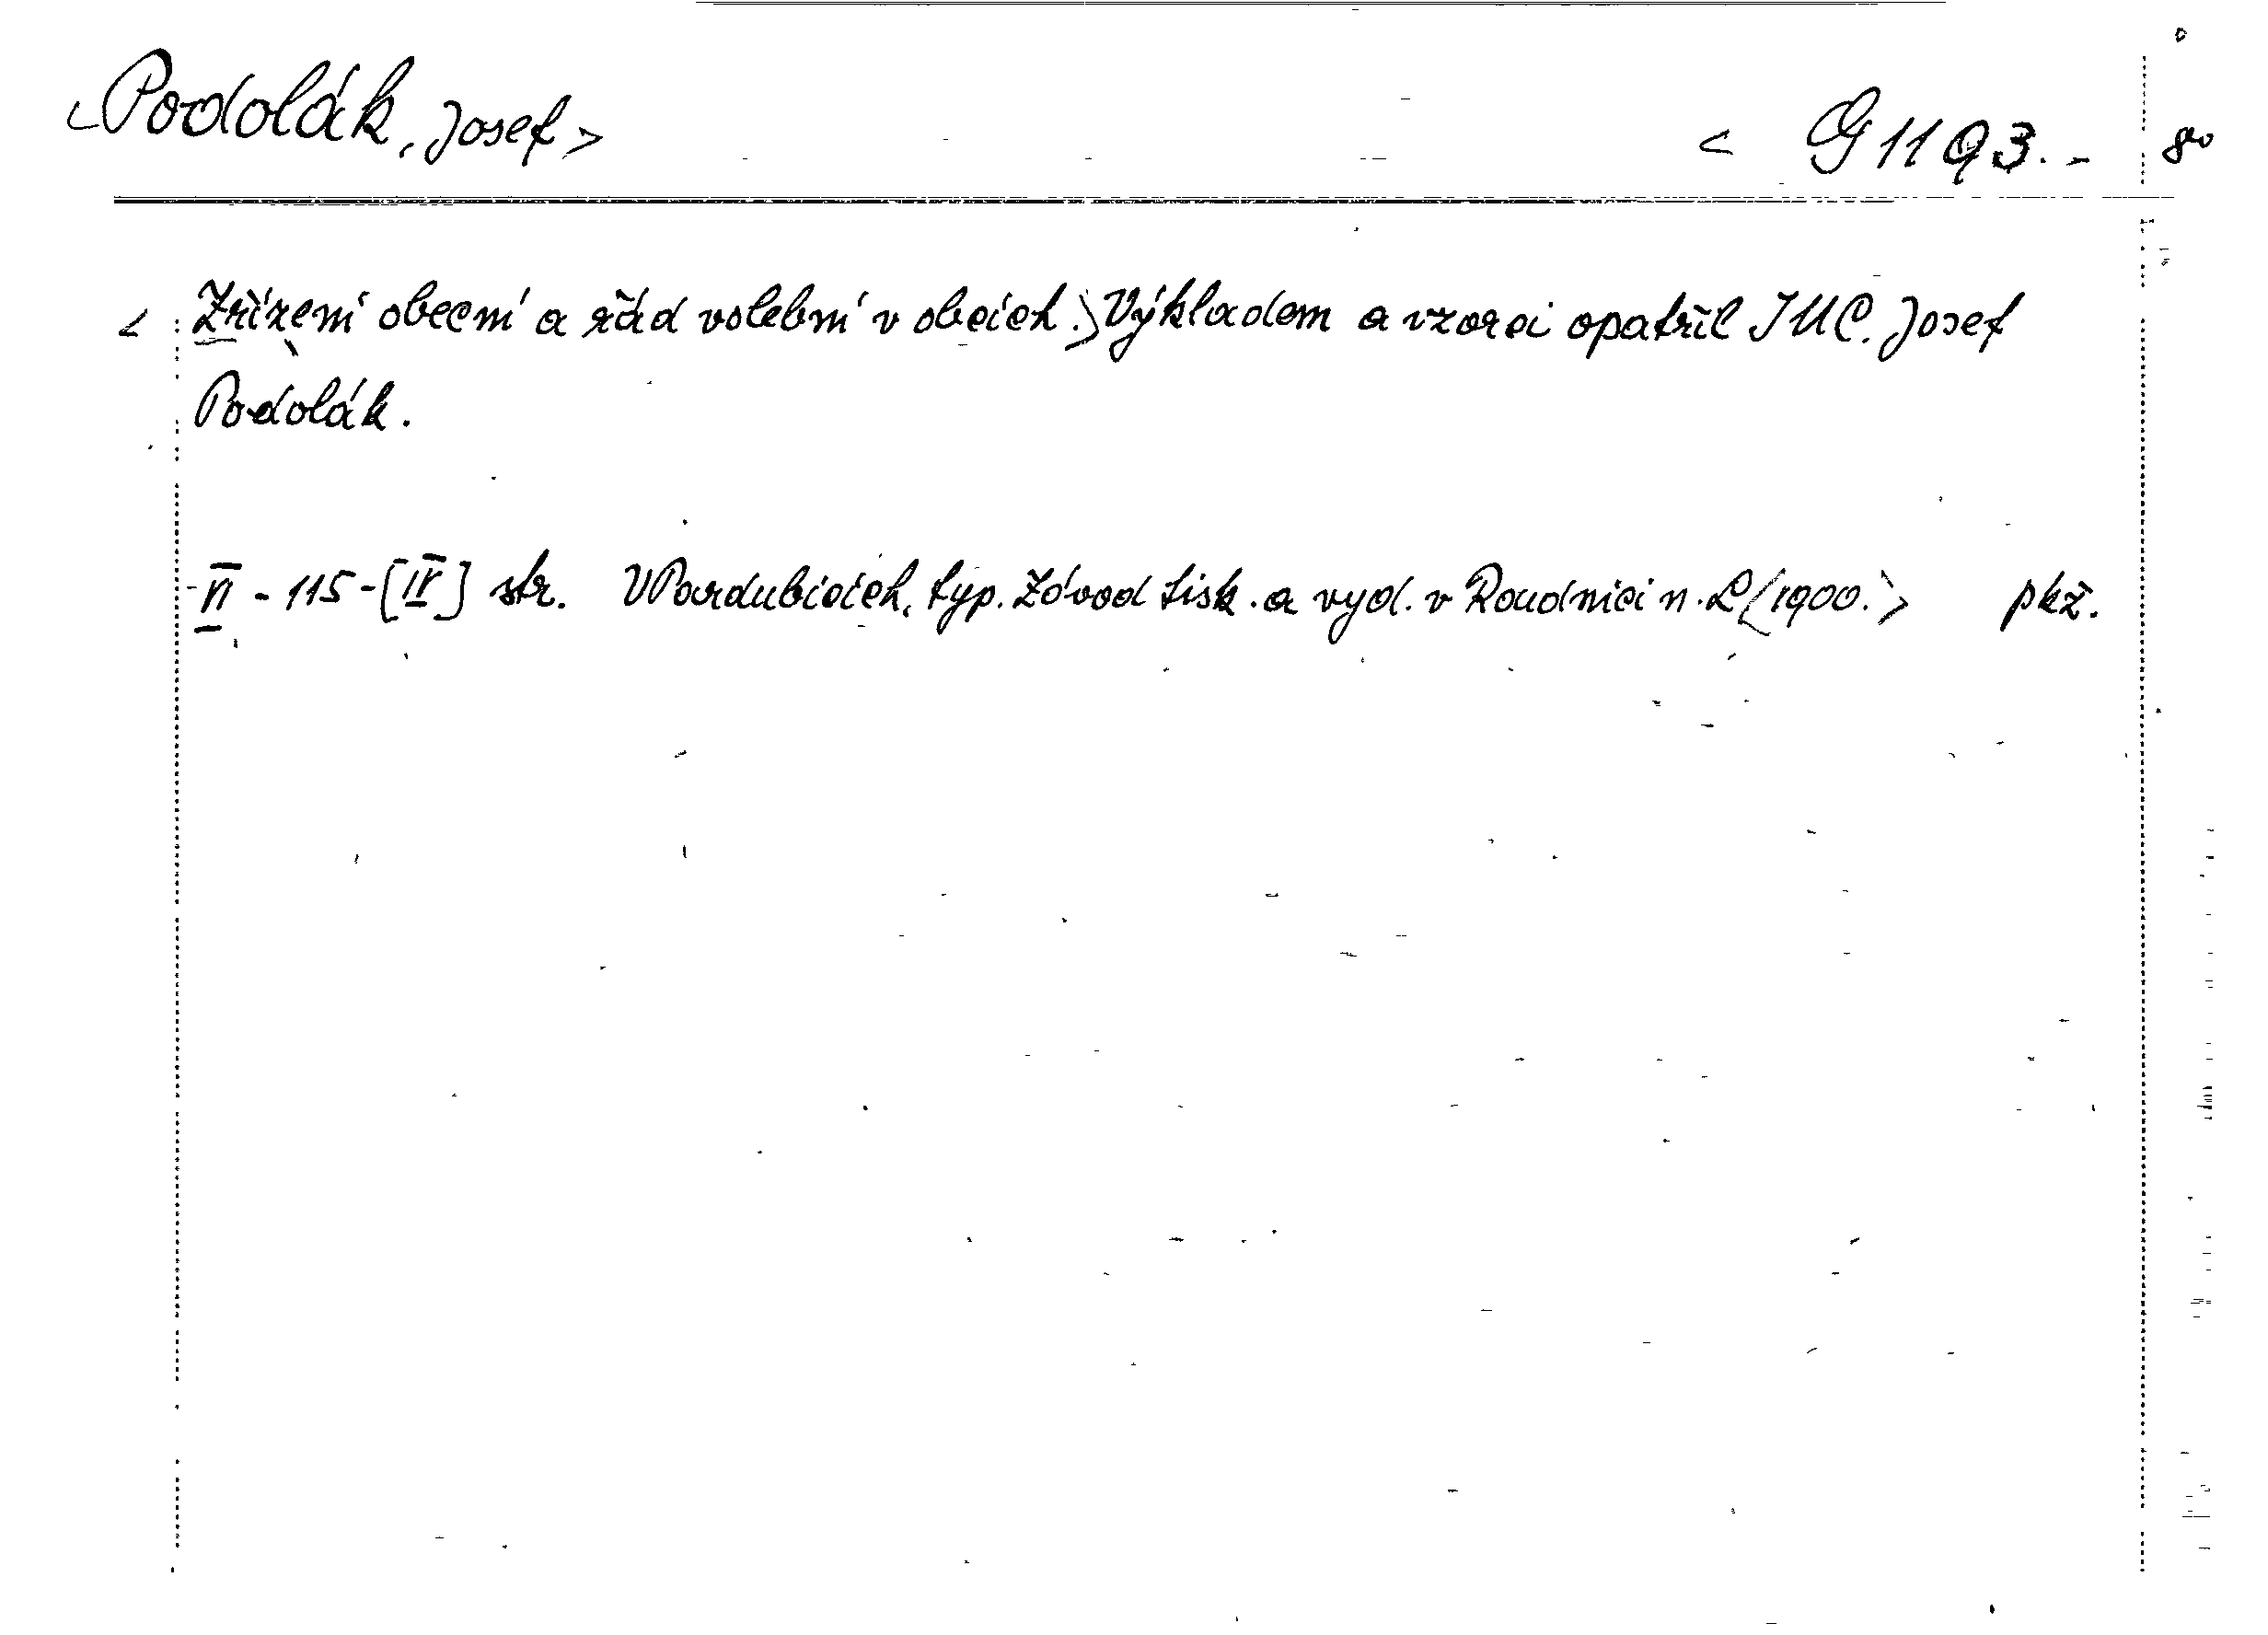 <Podolák, Josef> < G 11 Q 3.- 8°
< Zřízení obecní a řád volební v obcích.> Výkladem a vzorci opatřil JUC. Josef
Podolák.
VI - 115 - [IV] str. V Pardubicích, typ. Závod tisk. a vyd. v Roudnici n. L <1900.> pkž.